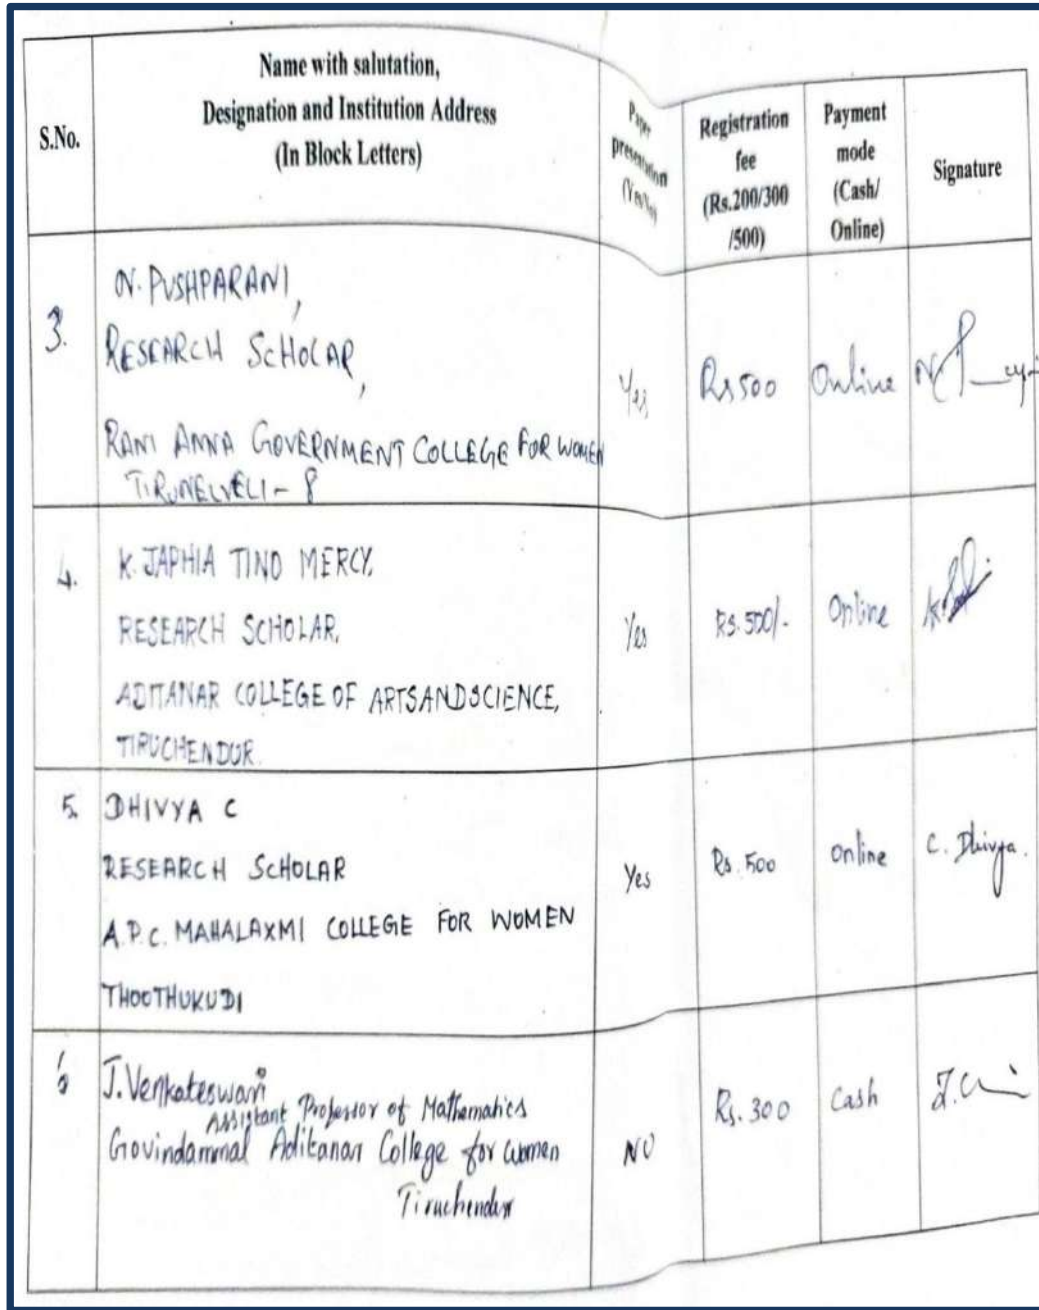 S.No.
Name with salutation,
Designation and Institution Address
(In Block Letters)
Paper
presentation
(Yes/No)
Registration
fee
(Rs.200/300
/500)
Payment
mode
(Cash/
Online)
Signature
3.
N. PUSHPARANI,
RESEARCH SCHOLAR,
RANI ANNA GOVERNMENT COLLEGE FOR WOMEN
TIRUNELVELI - 8
Yes
Rs 500
Online
4.
K. JAPHIA TINO MERCY,
RESEARCH SCHOLAR,
ADITANAR COLLEGE OF ARTS AND SCIENCE,
TIRUCHENDUR.
Yes
Rs. 500/-
Online
5.
DHIVYA C
RESEARCH SCHOLAR
A.P.C. MAHALAXMI COLLEGE FOR WOMEN
THOOTHUKUDI
Yes
Rs. 500
online
C. Dhivya.
J. Venkateswari
Assistant Professor of Mathematics
Govindammal Aditanar College for women
Tiruchendur
NO
Rs. 300
Cash